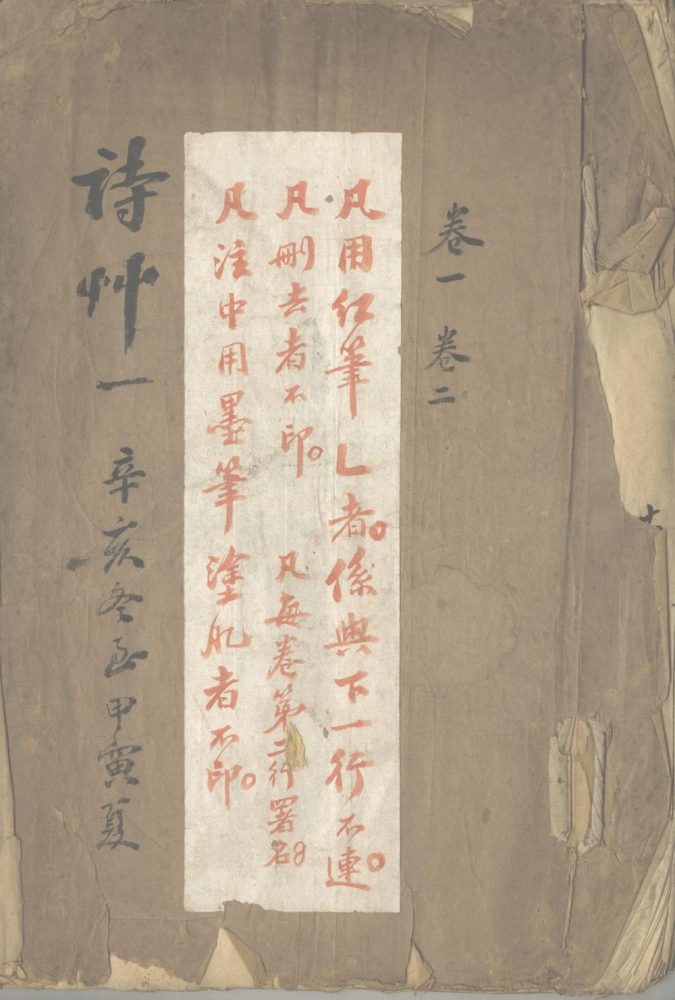 卷一 卷二
凡用紅筆乚者。係與下一行不連。
凡刪去者不印。 凡每卷第二行署名。
凡注中用墨筆塗者不印。
詩艸一 辛亥冬至甲寅夏